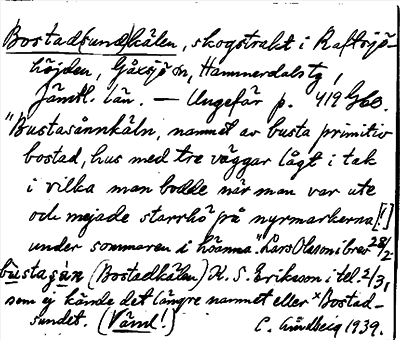 Bostad(sund)kälen, skogstrakt i Raftsjö-
höjden, Gåxsjö sn, Hammerdals tg,
Jämtl. län. — Ungefär p. 419 G60.
"Bustasånnkäln, namnet av busta primitiv
bostad, hus med tre väggar lågt i tak
i vilka man bodde när man var ute
och mejade starrhö på nyrmarkerna [!]
under sommaren i höanna." Lars Olsson i brev 28/2.
bustasún (Bostadkälen) K. S. Eriksson i tel. 2/3,
som ej kände det längre namnet eller × Bostad-
sundet. (Vänd!) C. Lindberg 1939.